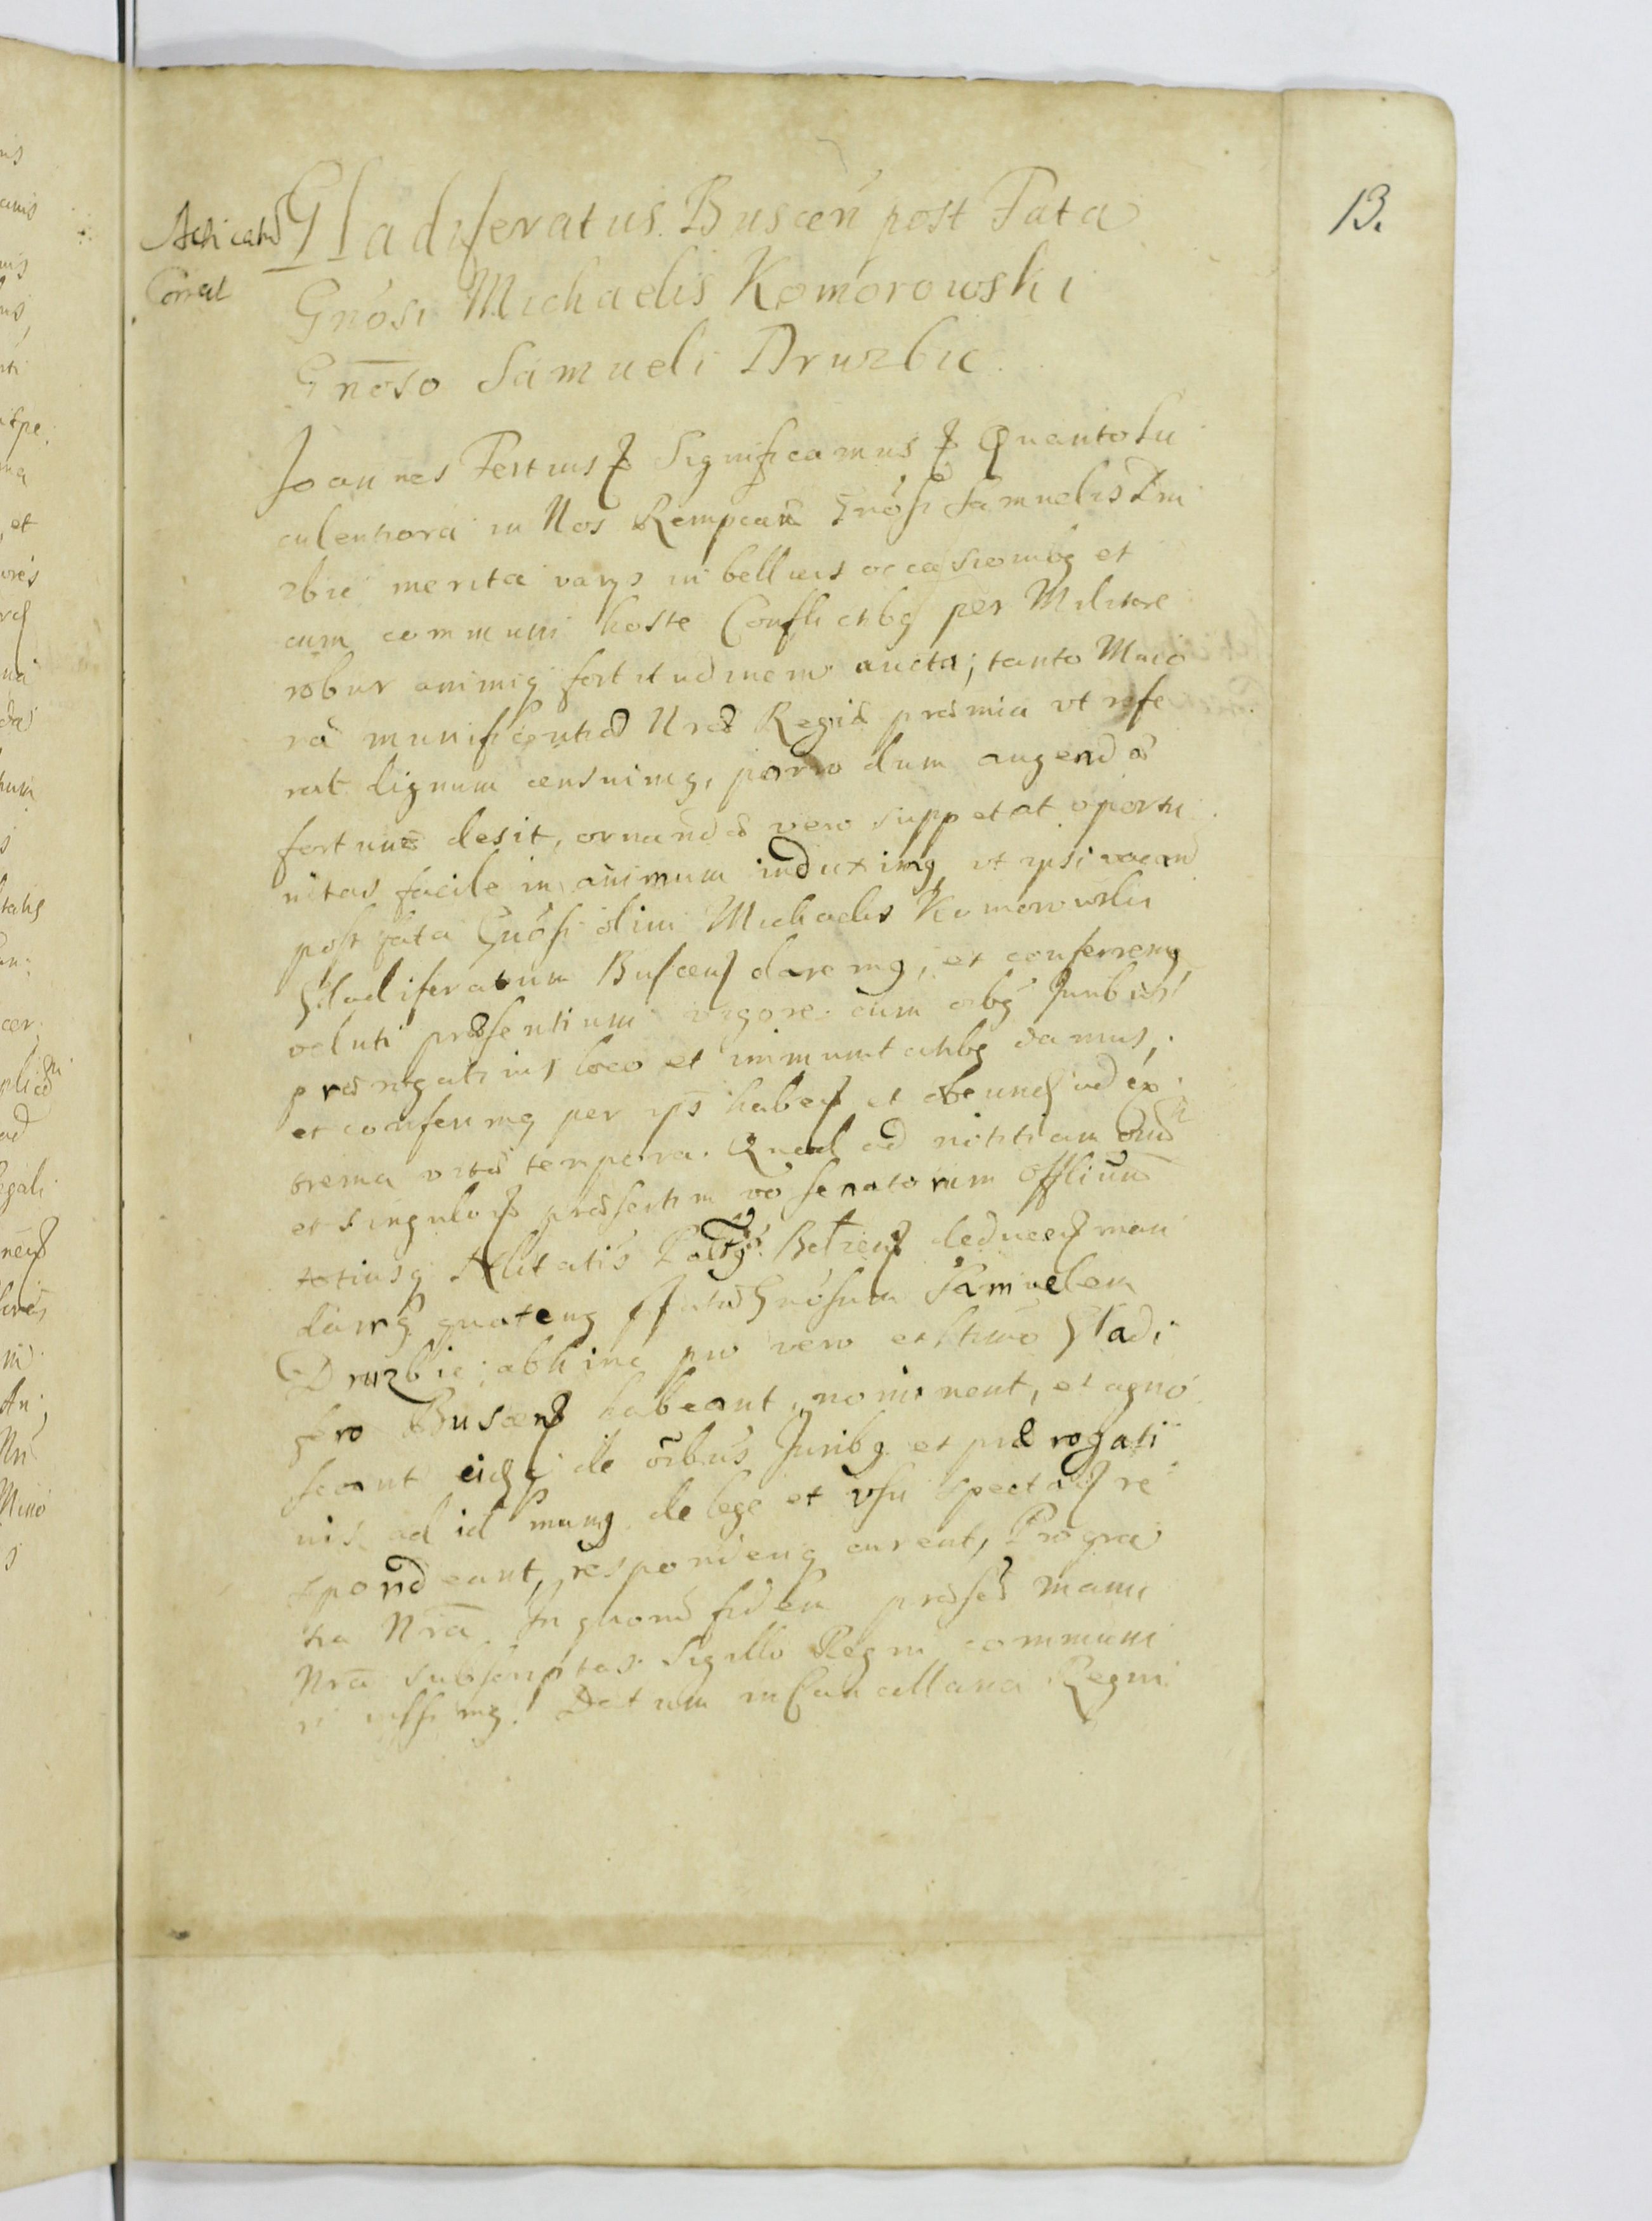 13.
Gladiferatus Buscen post Fata
Gnosi Michaelis Komorowski
Gnoso Samueli Druzbic
Joannes Tertius Significamus Quanto lu
culentiora in Nos Rempcam Gnosi Samuelis Dru
zbic merita varys in bellicis occasionibq et
cum communi hoste Conflictibq per Militare
robur animiq fortitudinem aucta; tanto Maio
ra munificentiæ Nræ Regiæ præmia vt refe
rat dignum censuimq, porro dum augendæ
fortunæ desit, ornandæ vero suppetat oportu
nitas facile in animum induximq, vt ipsi vacan
post fata Gnosi olim Michaelis Komorowski
Gladiferatum Buscens daremq, et conferremq
veluti præsentium vigore cum oibq Juribus
prærogativis loco et immunitatibq damus,
et conferimq per ips haben et obeund ad ex
trema vitæ tempora. Quod ad notitiam omn
et singulor præsertim vo senatorum Officium
totiusq Nlitatis Palt Belzens deducen man
damq quatenq Gnosum Samuelem
Druzbic abhinc pro vero et Gladi
fero Buscens habeant, nominent, et agno
scant eidq de oibus Juribq et præ rogati
uis ad id munq de lege et vsu spectan re
spondeant, responderiq curent, Pro gra
tia Nra. In quorū fidem præsēs manu
Nra subscriptas Sigillo Regni communi
ri iussimq. Datum in Cancellaria Regni